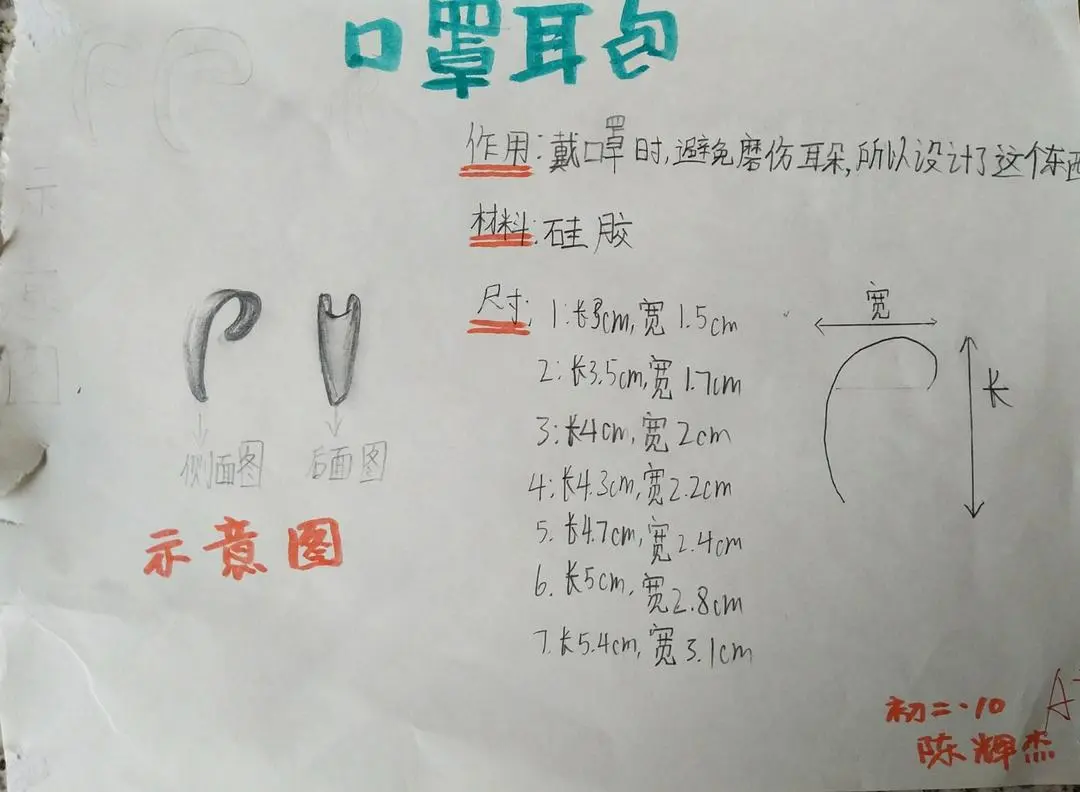 口罩耳包
作用:戴口罩时,避免磨伤耳朵,所以设计了这个东西
材料:硅胶
尺寸:1:长3cm,宽1.5cm
2:长3.5cm,宽1.7cm
3:长4cm,宽2cm
4:长4.3cm,宽2.2cm
5.长4.7cm,宽2.4cm
6.长5cm,宽2.8cm
7.长5.4cm,宽3.1cm
宽
长
侧面图
后面图
示意图
初二·10
陈辉杰
A